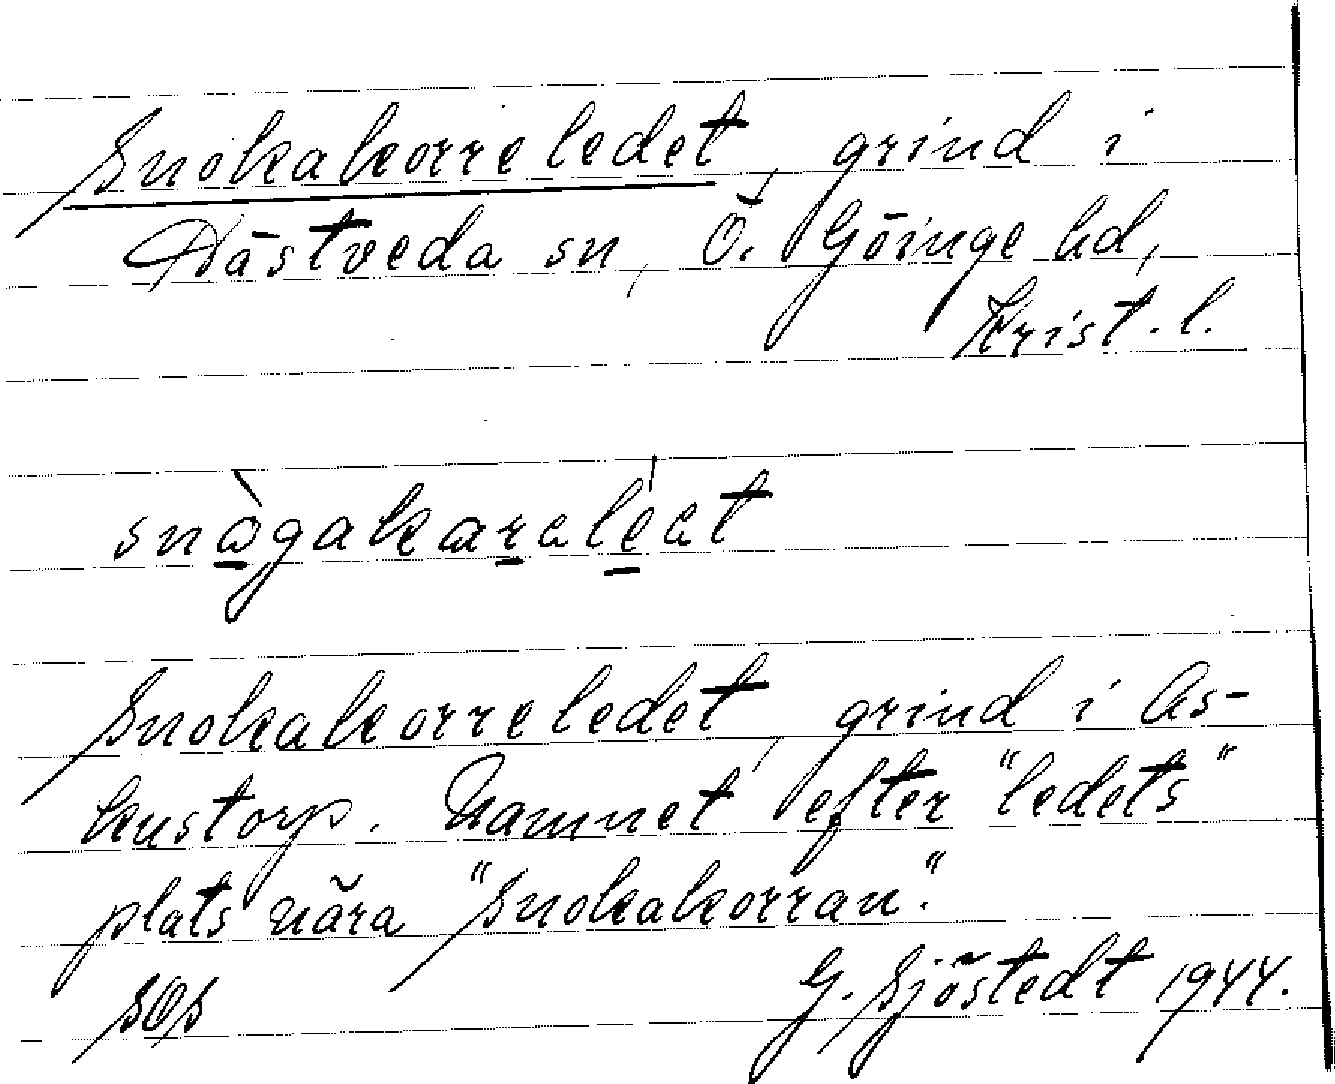 Snokakorreledet, grind i
Hästveda sn, Ö. Göinge hd,
Krist. l.
snàgakaraléat
Snokakorreledet, grind i As-
kustorp. Namnet efter "ledets"
plats nära "Snokakorran".
SOS G. Sjöstedt 1944.